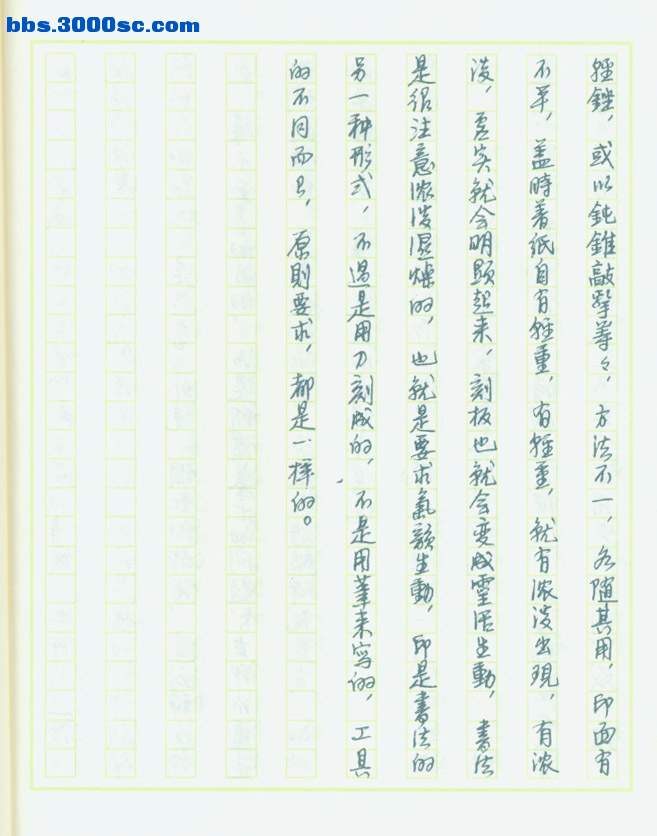 bbs.3000sc.com
輕銼，或以鈍錐敲擊等々，方法不一，各隨其用，印面有
不平，蓋時着紙自有輕重，有輕重，就有浓淡出現，有浓
淡，虚实就会明顕起来，刻板也就会变成靈活生動，書法
是很注意浓淡濕燥的，也就是要求氣韻生動，印是書法的
另一种形式，不過是用刀刻成的，不是用筆来寫的，工具
的不同而已，原則要求，都是一样的。